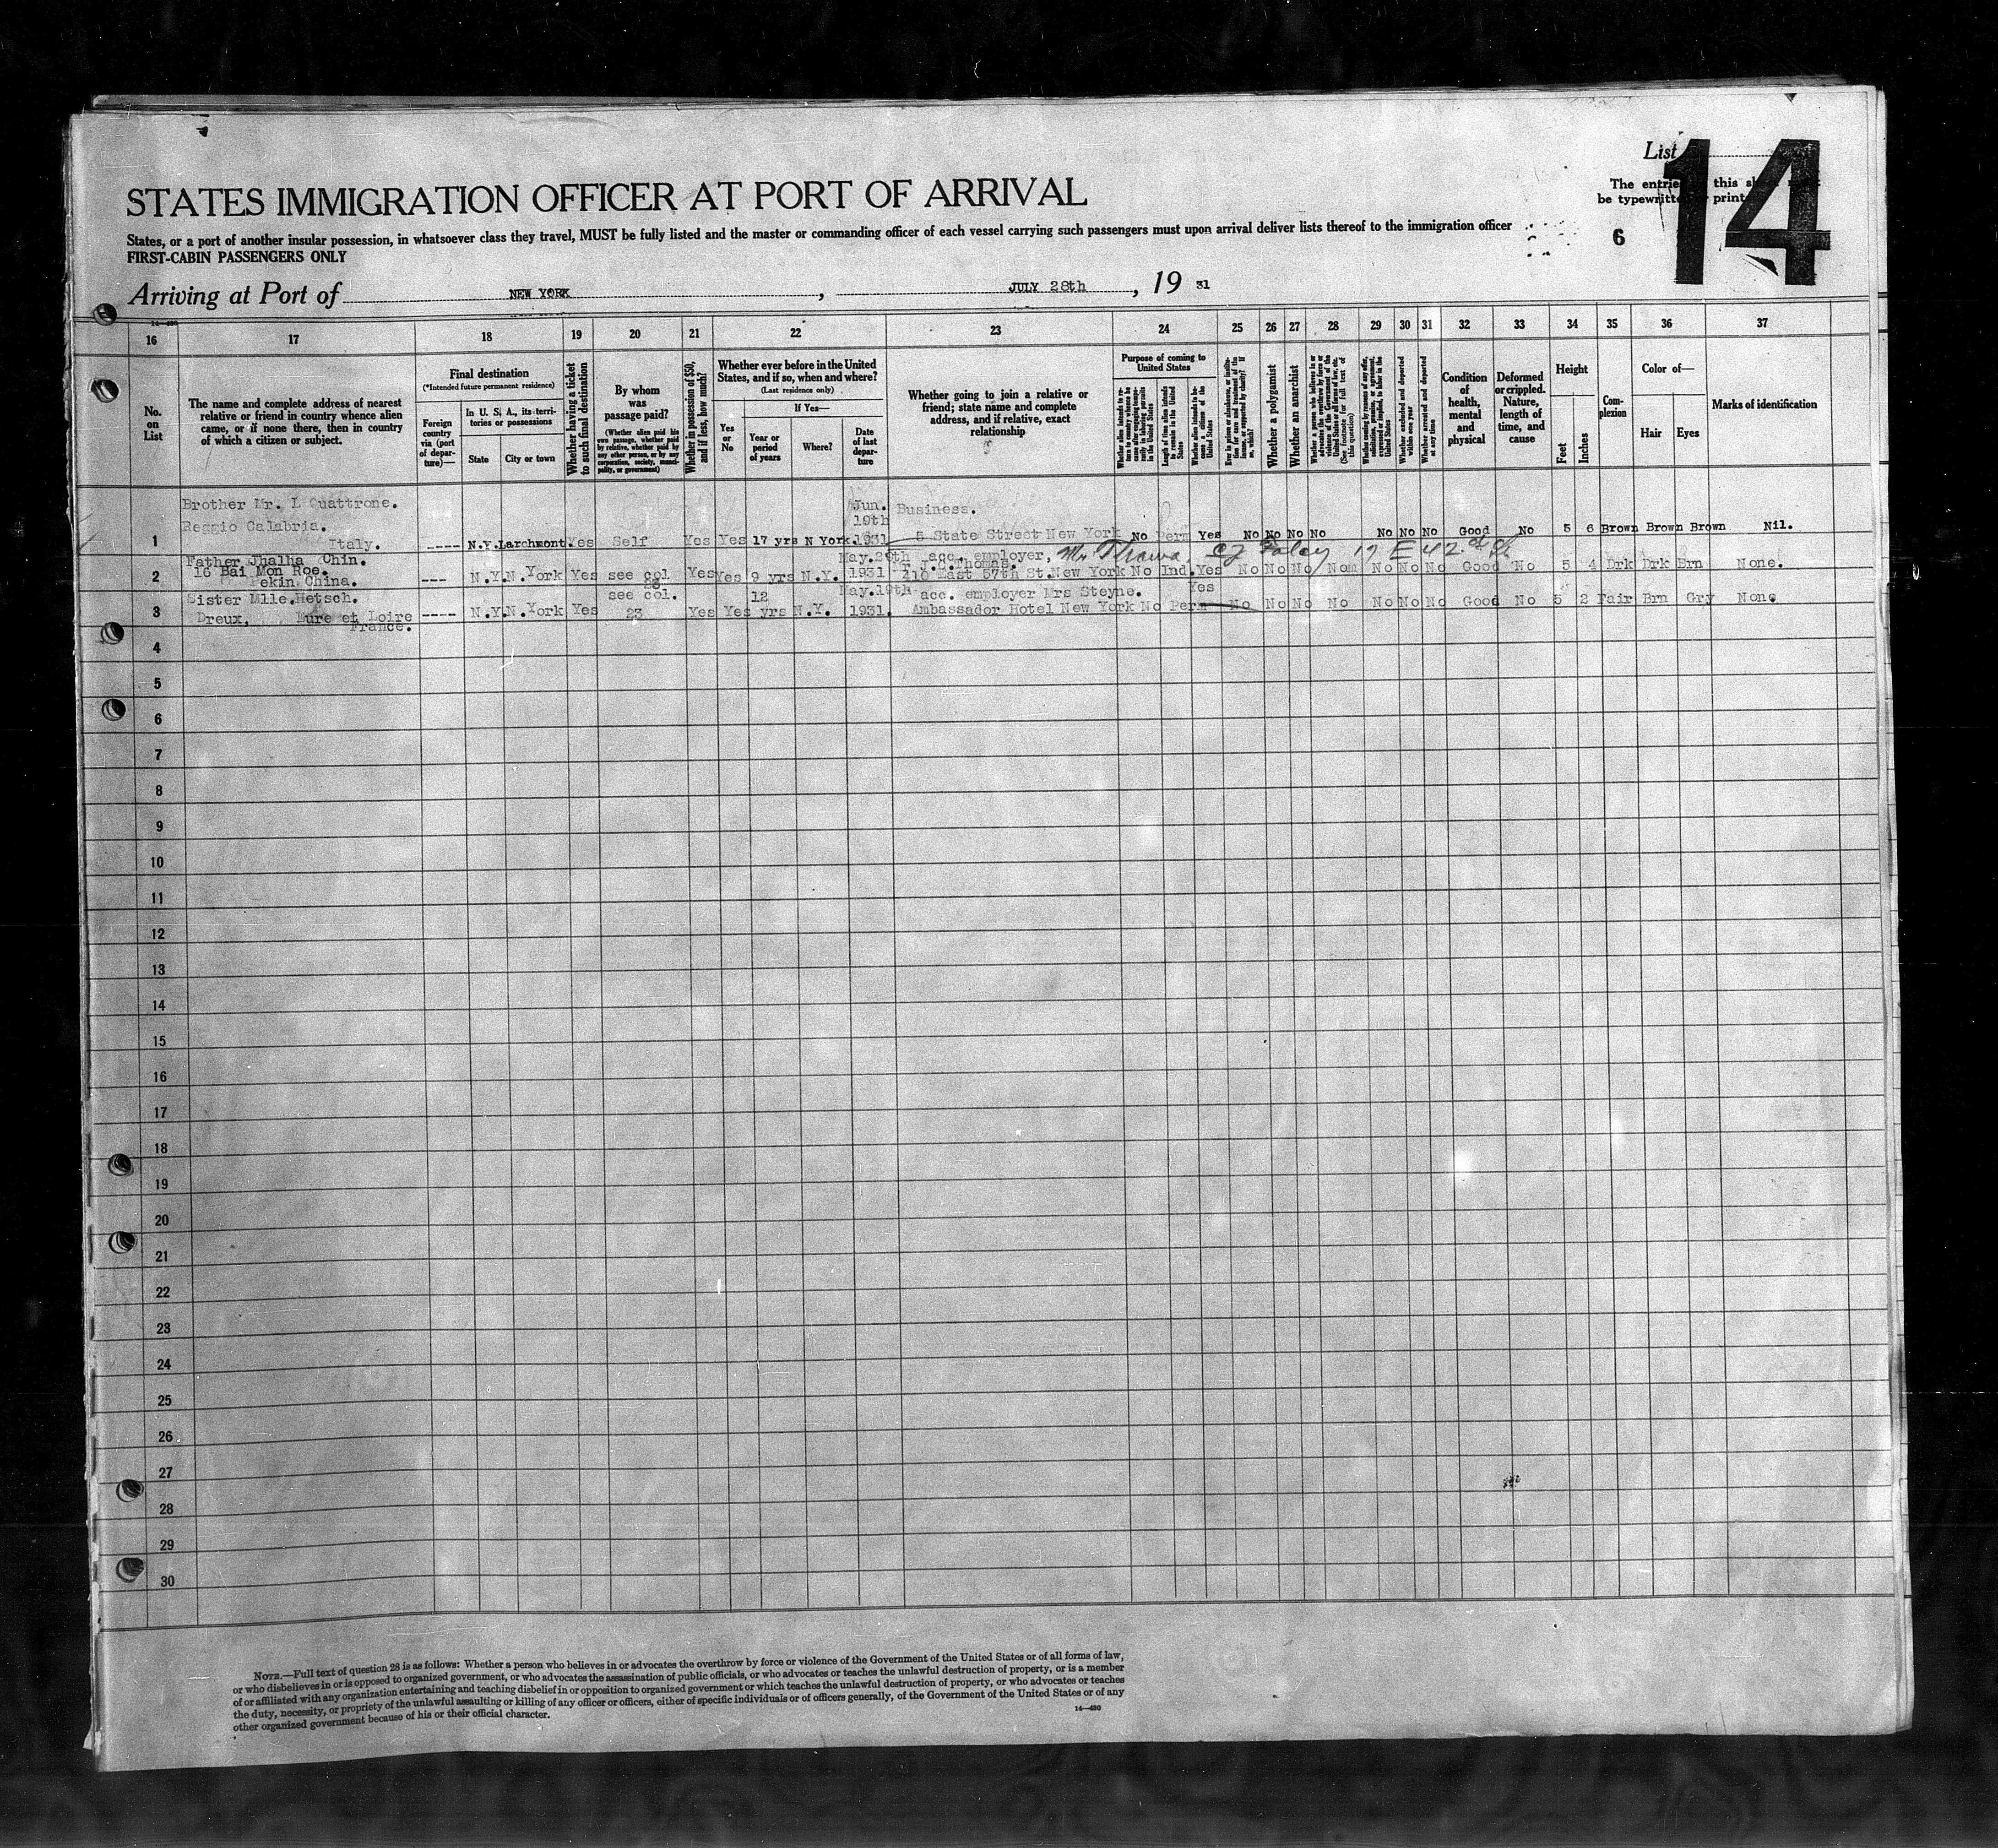 List 14
The entries this
be typewritten print
STATES IMMIGRATION OFFICER AT PORT OF ARRIVAL
States, or a port of another insular possession, in whatsoever class they travel, MUST be fully listed and the master or commanding officer of each vessel carrying such passengers must upon arrival deliver lists thereof to the immigration officer
FIRST-CABIN PASSENGERS ONLY
6
Arriving at Port of NEW YORK, JULY 28th, 19 31
16 17 18 19 20 21 22 23 24 25 26 27 28 29 30 31 32 33 34 35 36 37
No. on List
The name and complete address of nearest
relative or friend in country whence alien
came, or if none there, then in country
of which a citizen or subject.
Final destination
(*Intended future permanent residence)
Foreign country via (port of departure)—
In U. S. A., its territories or possessions
State
City or town
Whether having a ticket to such final destination
By whom was passage paid?
(Whether alien paid his own passage, whether paid by relative, whether paid by any other person, or by any corporation, society, municipality, or government)
Whether in possession of $50, and if less, how much?
Whether ever before in the United States, and if so, when and where?
(Last residence only)
Yes or No
If Yes—
Year or period of years
Where?
Date of last departure
Whether going to join a relative or
friend; state name and complete
address, and if relative, exact
relationship
Purpose of coming to United States
Length of time alien intends to remain in the United States
Whether a polygamist
Whether an anarchist
Condition of health, mental and physical
Deformed or crippled. Nature, length of time, and cause
Height
Feet
Inches
Complexion
Color of—
Hair
Eyes
Marks of identification
Brother Mr. L Quattrone.
Reggio Calabria.
Italy.
1 ---- N.Y. Larchmont. Yes Self Yes Yes 17 yrs N York Jun. 19th 1931
Business.
5 State Street New York No Perm Yes No No No No No No No Good No 5 6 Brown Brown Brown Nil.
Father Thalha Chin.
16 Bai Mon Roe.
Pekin China.
2 --- N.Y. N.York Yes see col 23 Yes Yes 9 yrs N.Y. May.29th 1931
acc. employer, Mr. 17 E 42nd St
J.C.Thomas.
210 East 57th St.New York No Ind. Yes No No No Nom No No No Good No 5 4 Drk Drk Brn None.
Sister Mlle.Hetsch.
Dreux, Eure et Loire
France.
3 ---- N.Y. N.York Yes see col. 23 Yes Yes 12 yrs N.Y. May.19th 1931.
acc. employer Mrs Steyne. Yes
Ambassador Hotel New York No Perm No No No No No No No Good No 5 2 Fair Brn Gry None
4
5
6
7
8
9
10
11
12
13
14
15
16
17
18
19
20
21
22
23
24
25
26
27
28
29
30
NOTE.—Full text of question 28 is as follows: Whether a person who believes in or advocates the overthrow by force or violence of the Government of the United States or of all forms of law,
or who disbelieves in or is opposed to organized government, or who advocates the assassination of public officials, or who advocates or teaches the unlawful destruction of property, or is a member
of or affiliated with any organization entertaining and teaching disbelief in or opposition to organized government or which teaches the unlawful destruction of property, or who advocates or teaches
the duty, necessity, or propriety of the unlawful assaulting or killing of any officer or officers, either of specific individuals or of officers generally, of the Government of the United States or of any
other organized government because of his or their official character.
14—430